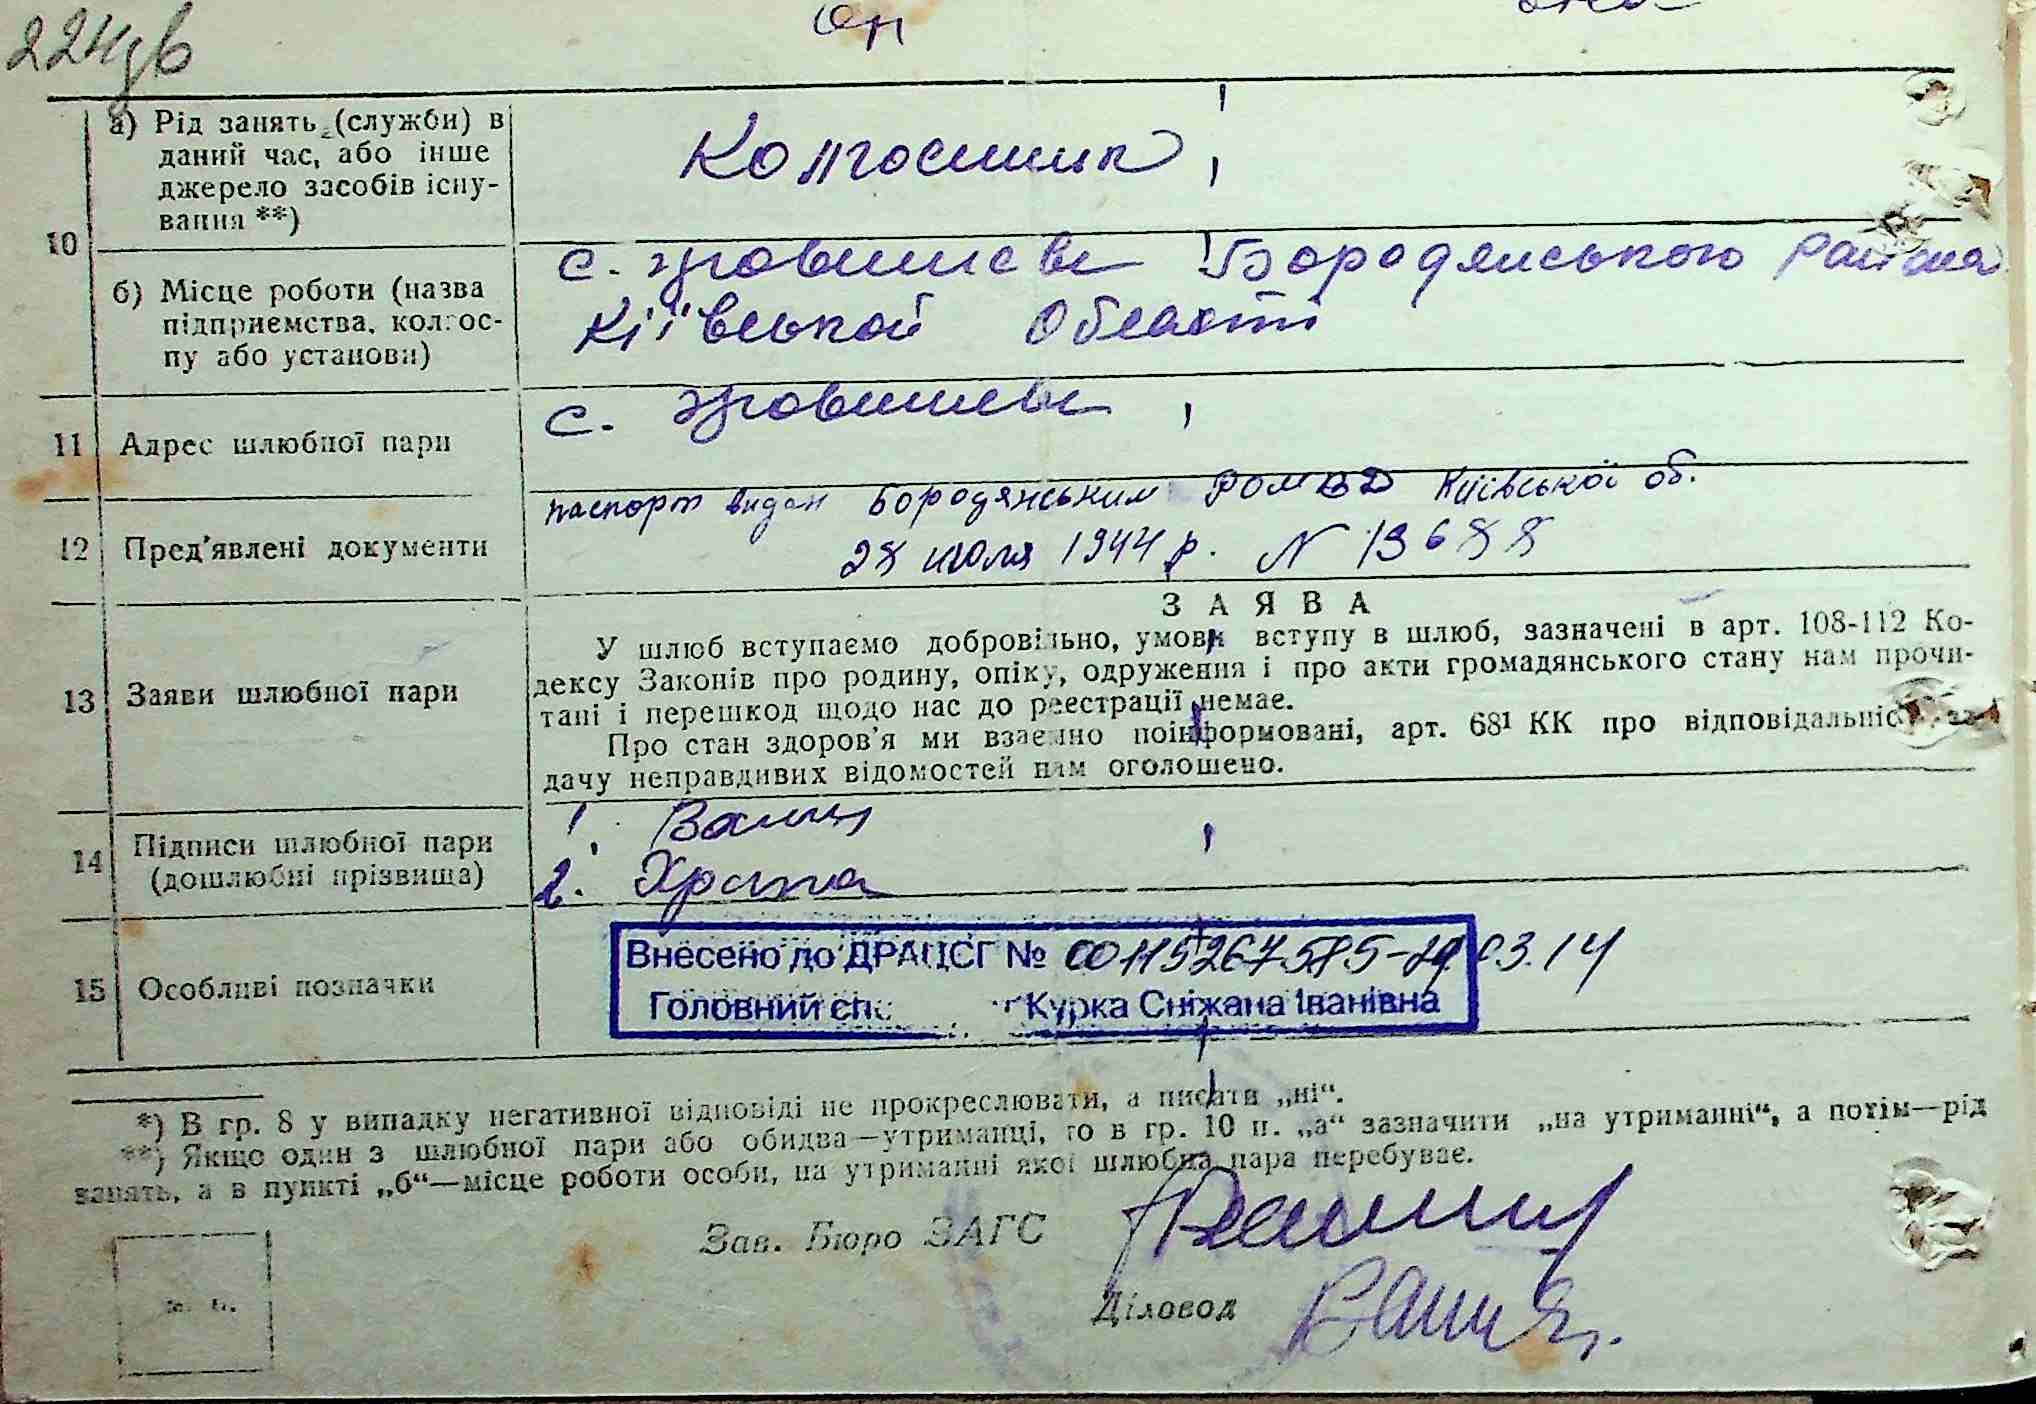 224зв
он
10
а) Рід занять (служби) в
даний час, або інше
джерело засобів існу-
вання **)
Колгоспник
б) Місце роботи (назва
підприємства, колгос-
пу або установи)
с. Бородянського района
Київської Області
11 Адрес шлюбної пари
с.
12 Пред'явлені документи
паспорт видан Бородянським РОМВД Київської об.
28 июля 1944 р. N 13688
13 Заяви шлюбної пари
ЗАЯВА
У шлюб вступаємо добровільно, умови вступу в шлюб, зазначені в арт. 108-112 Ко-
дексу Законів про родину, опіку, одруження і про акти громадянського стану нам прочи-
тані і перешкод щодо нас до реєстрації немає.
Про стан здоров'я ми взаємно поінформовані, арт. 68¹ КК про відповідальність за
дачу неправдивих відомостей нам оголошено.
14 Підписи шлюбної пари
(дошлюбні прізвища)
1.
2. Храпа
15 Особливі позначки
Внесено до ДРАЦСГ № 00115267585-29.03.14
Головний Курка Сніжана Іванівна
*) В гр. 8 у випадку негативної відповіді не прокреслювати, а писати „ні“.
**) Якщо один з шлюбної пари або обидва—утриманці, то в гр. 10 п. „а“ зазначити „на утриманні“, а потім—рід
занять, а в пункті „б“—місце роботи особи, на утриманні якої шлюбна пара перебуває.
Зав. Бюро ЗАГС
Діловод
м. п.